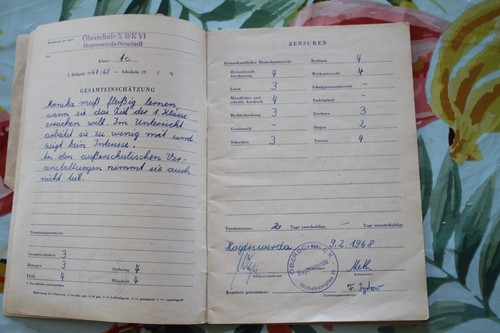 Oberschule X WK VI
Hoyerswerda-Neustadt
Klasse 1c
1. Halbjahr 1967/68 — Schuljahr 19 / 19
GESAMTEINSCHÄTZUNG
Monika muß fleißig lernen,
wenn sie das Ziel der 1. Klasse
erreichen will. Im Unterricht
arbeitet sie zu wenig mit und
zeigt kein Interesse.
An den außerschulischen Ver-
anstaltungen nimmt sie auch
nicht teil.
Gesamtverhalten 3
Betragen 3
Ordnung 4
Fleiß 4
Mitarbeit 4
ZENSUREN
Heimatkundlicher Deutschunterricht 4
Rechnen 4
Heimatkundl. Anschauung 4
Werkunterricht 4
Lesen 3
Schulgartenunterricht —
Mündlicher und schriftl. Ausdruck 4
Nadelarbeit —
Rechtschreibung 3
Zeichnen 3
Grammatik —
Singen 2
Schreiben 3
Turnen 4
Versäumnisse: 2 Tage entschuldigt, — Tage unentschuldigt
Hoyerswerda 9.2.1968
OBERSCHULE X